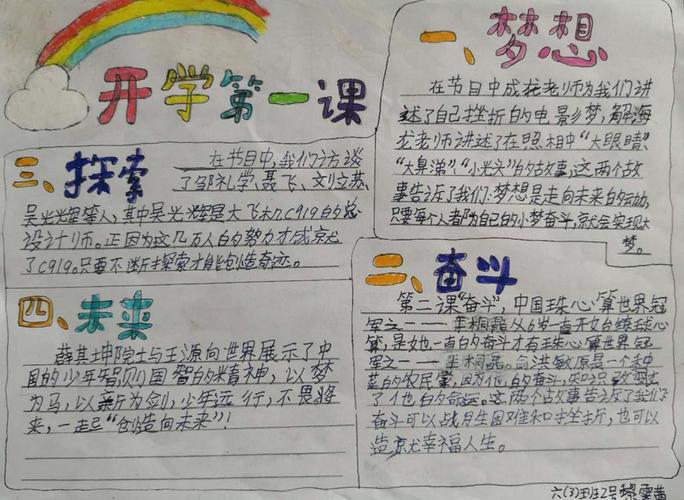 开学第一课
一、梦想
在节目中成龙老师为我们讲
述了自己挫折的电影梦,解海
龙老师讲述了在照相中“大眼睛”
“大鼻涕”、“小光头”的故事,这两个故
事告诉了我们:梦想是走向未来的动力,
只要每个人都为自己的小梦奋斗,就会实现大
梦。
二、奋斗
第二课“奋斗”,中国珠心算世界冠
军之一——桐磊从6岁一直开始练珠心
算,是她一直的奋斗才有珠心算世界冠
军之一——桐磊。俞洪敏原是一个种
菜的农民,因为他的奋斗,知识改变
了他的命运。这两个故事告诉了我们:
奋斗可以战胜困难和挫折,也可以
造就幸福人生。
三、探索
在节目中,我们访谈
了邹礼学、聂飞、刘立苏、
吴光辉等人,其中吴光辉是大飞机C919的总
设计师。正因为这几万人的努力才成就
了C919。只要不断探索才能创造奇迹。
四、未来
薛其坤院士与王源向世界展示了中
国的少年智则国智的精神,以梦
为马,以新为剑,少年远行,不畏将
来,一起“创造向未来”!
六(3)班2号